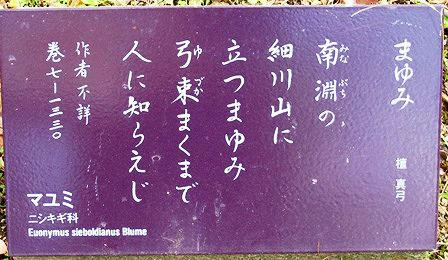 まゆみ
檀 真弓
南淵の
みな ぶち
細川山に
立つまゆみ
弓束まくまで
ゆ づか
人に知らえじ
作者 不詳
巻七―一三三〇
マユミ
ニシキギ科
Euonymus sieboldianus Blume